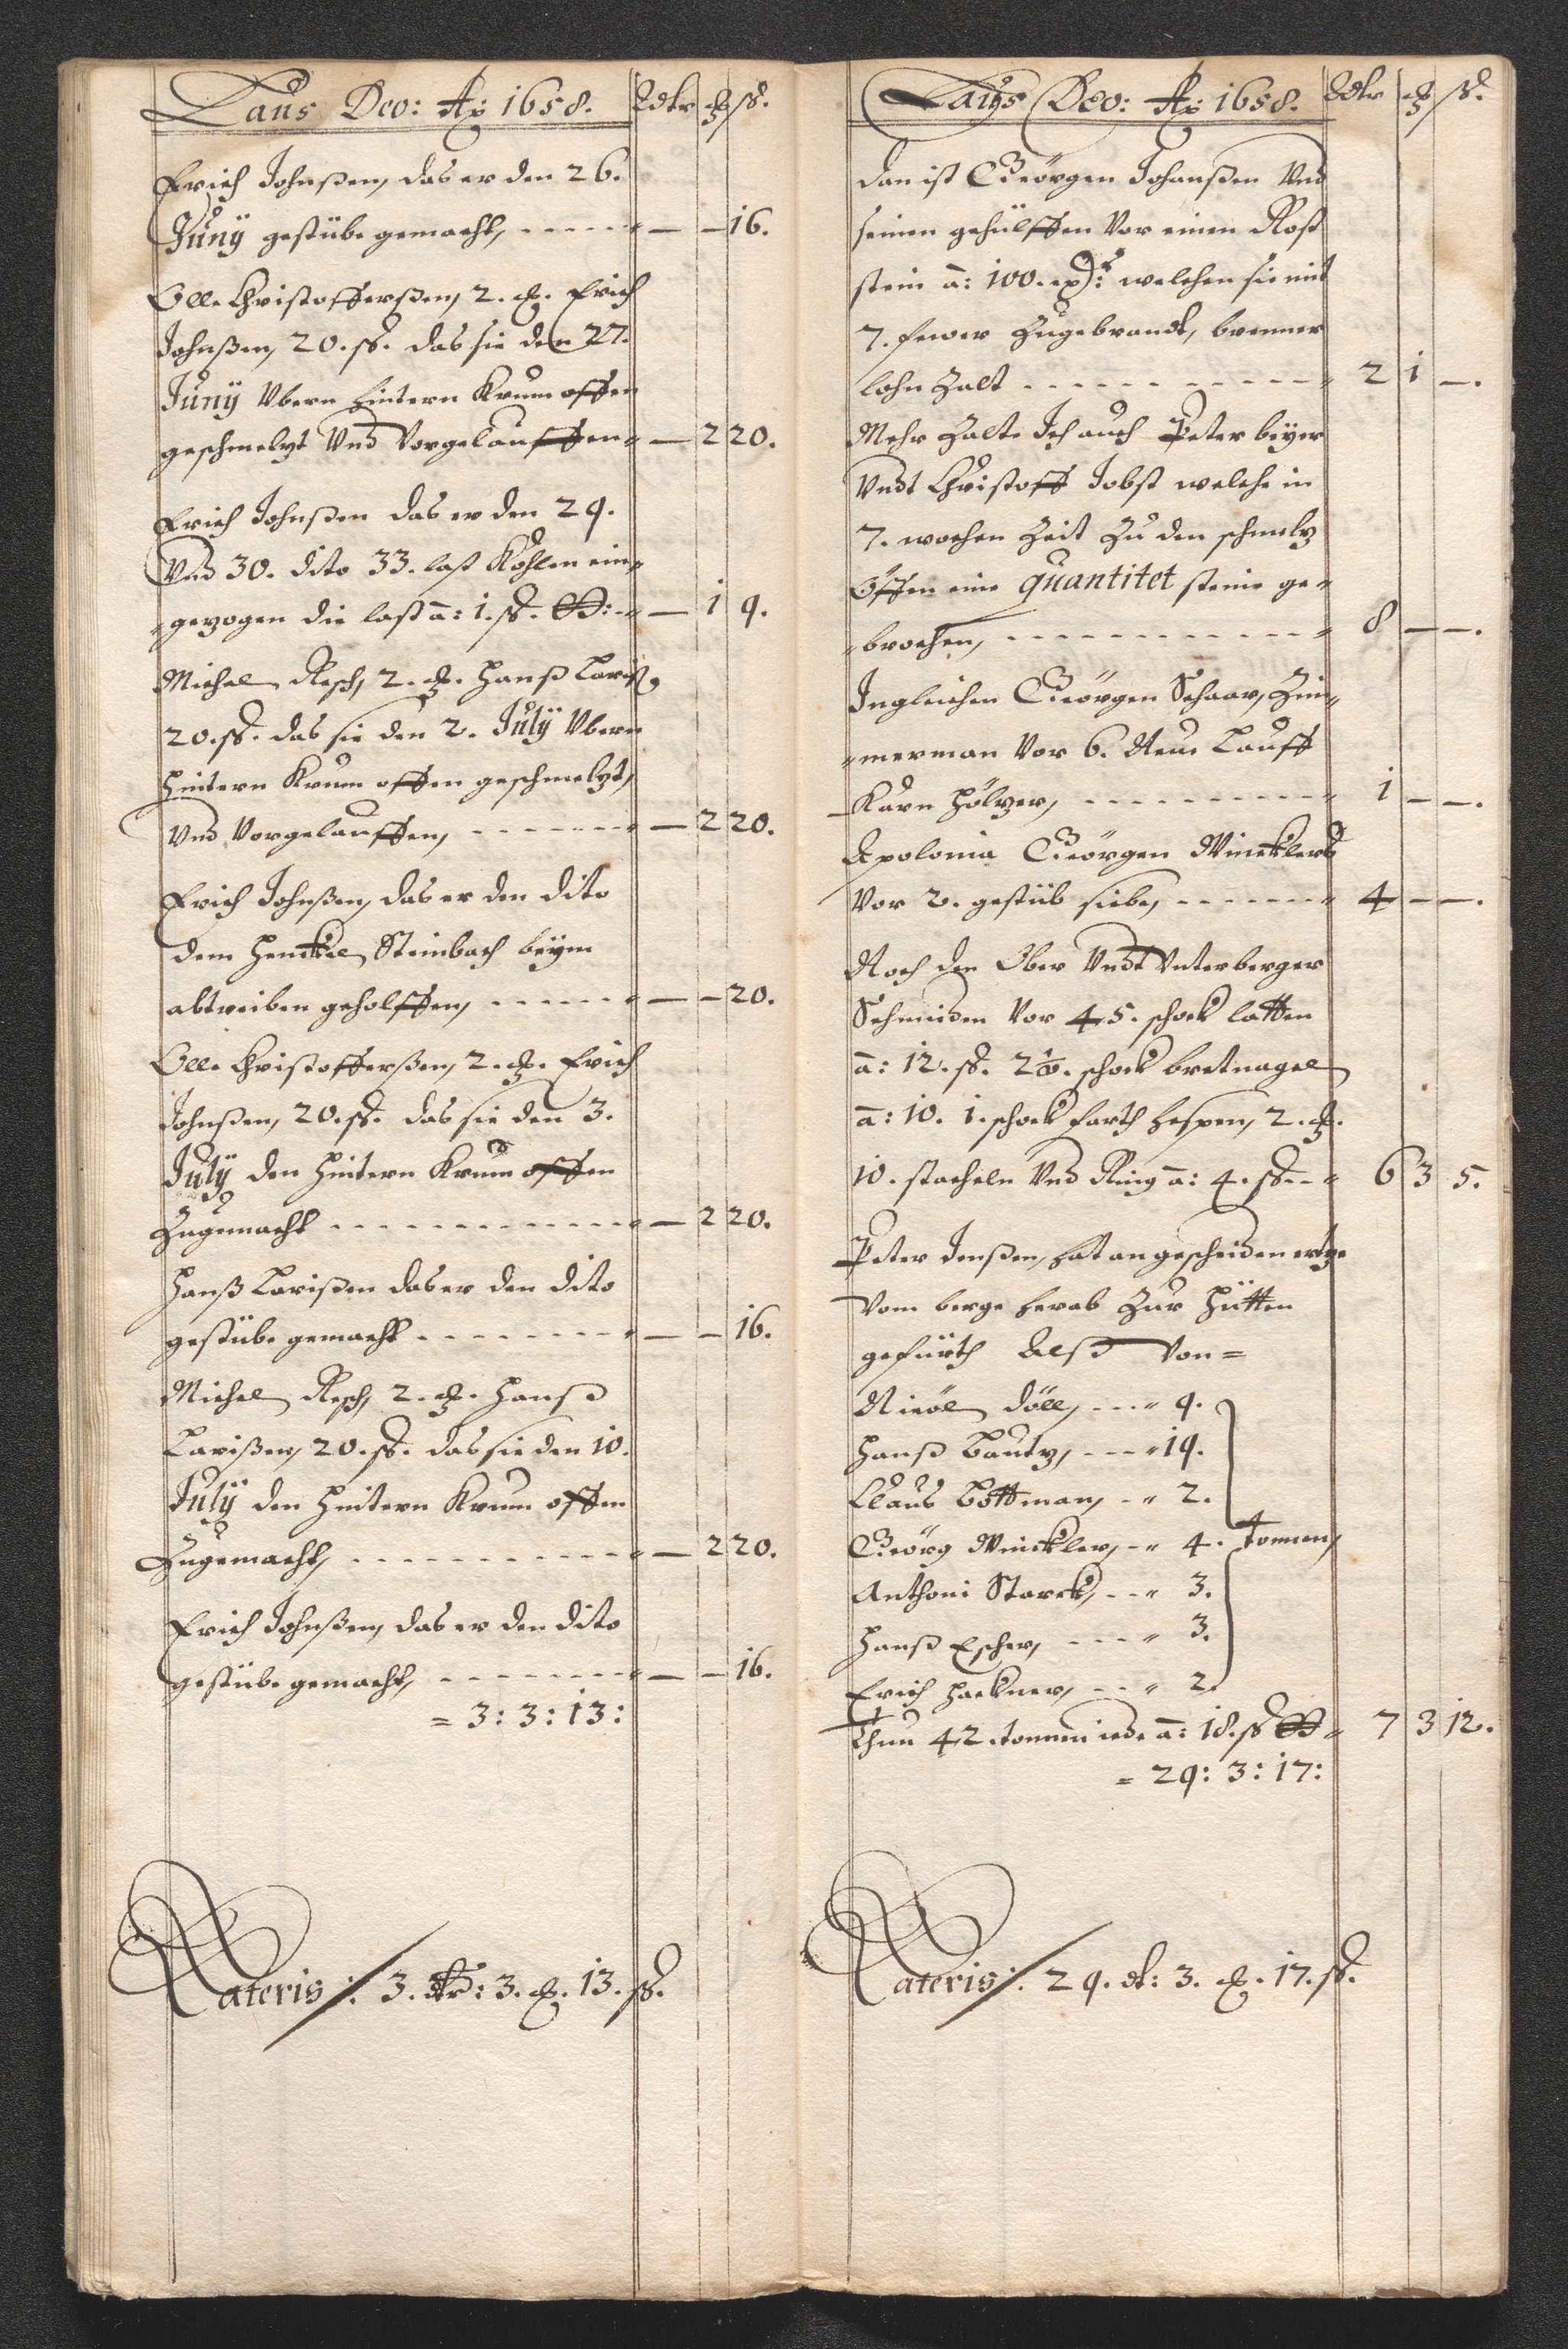 Laus Deo: Ao: 1658. Rdtr ꝑ ß.
Erich Johnßen, das er den 26.
Juny gestübe gemacht, - - - - - — — 16.
Olle Christofferßen, 2. ꝑ. Erich
Johnßen, 20. ß. das sie den 27.
Juny Vbern hintern Krum offen
geschmeltzt Vnd Vorgelauffen - — 2 20.
Erich Johnßen das er den 29.
Vnd 30. dito 33. last Kohlen ein-
-gezogen die last â: 1. ß. - — 1 9.
Michel Resch, 2. ꝑ. Hanß Lariß,
20. ß. das sie den 2. July Vbern
hintern Krum offen geschmeltzt,
Vnd Vorgelauffen, - - - - - - - — 2 20.
Erich Johnßen, das er den dito
dem Henckel Steinbach beym
abtreiben geholffen, - - - - - - — — 20.
Olle Christofferßen, 2. ꝑ. Erich
Johnßen, 20. ß. das sie den 3.
July den hintern Krum offen
Zugemacht - - - - - - - - - - - - — 2 20.
Hanß Larißen das er den dito
gestübe gemacht - - - - - - - - — — 16.
Michel Resch, 2. ꝑ. Hanß
Larißen, 20. ß. das sie den 10.
July den hintern Krum offen
Zugemacht, - - - - - - - - - - - — 2 20.
Erich Johnßen, das er den dito
gestübe gemacht, - - - - - - - - — — 16.
= 3: 3: 13:
Lateris :/: 3. dtr: 3. ꝑ. 13. ß.
Laus Deo: Ao: 1658. Rdtr ꝑ ß.
Dan ist Geörgen Johanßen Vnd
seinen gehülffen Vor einen Rost
stein â: 100. welchen sie mit
7. fewer Zugebrandt, brenner
lohn Zalt - - - - - - - - - - - 2 1 —.
Mehr Zalte Ich auch Peter beyer
Vndt Christoff Jobst welche in
7. wochen Zeit Zu den schmeltz
Öffen eine quantitet steine ge-
-brochen, - - - - - - - - - - - - 8 — —.
Ingleichen Geörgen Schaar, Zim-
-merman Vor 6. Neue Lauff
Karn Höltzer, - - - - - - - - - - 1 — —.
Apolonia Geörgen Wincklers
Vor 2. gestüb siebe, - - - - - - - 4 — —.
Noch den Ober Vndt Vnterberger
Schmiden Vor 45. schock latten
â: 12. ß. 2½. schock bretnagel
â: 10. 1. schock farth hespen, 2. ꝑ.
10. stacheln Vnd Ring â: 4. ß. - - 6 3 5.
Peter Jenßen, hat an gescheiden ertze
Vom berge herab Zur Hütten
gefürth Alß Von =
Nicöl Döll, - - - 9.
Hanß Bautz, - - - 19.
Claus Bottman, - - 2.
Geörg Winckler, - - 4. Tonnen,
Anthoni Starck, - - 3.
Hanß Escher, - - - 3.
Erich Hackner, - - 2.
Thun 42. tonnen iede â: 18. ß - 7 3 12.
= 29: 3: 17:
Lateris :/: 29. dt: 3. ꝑ. 17. ß.